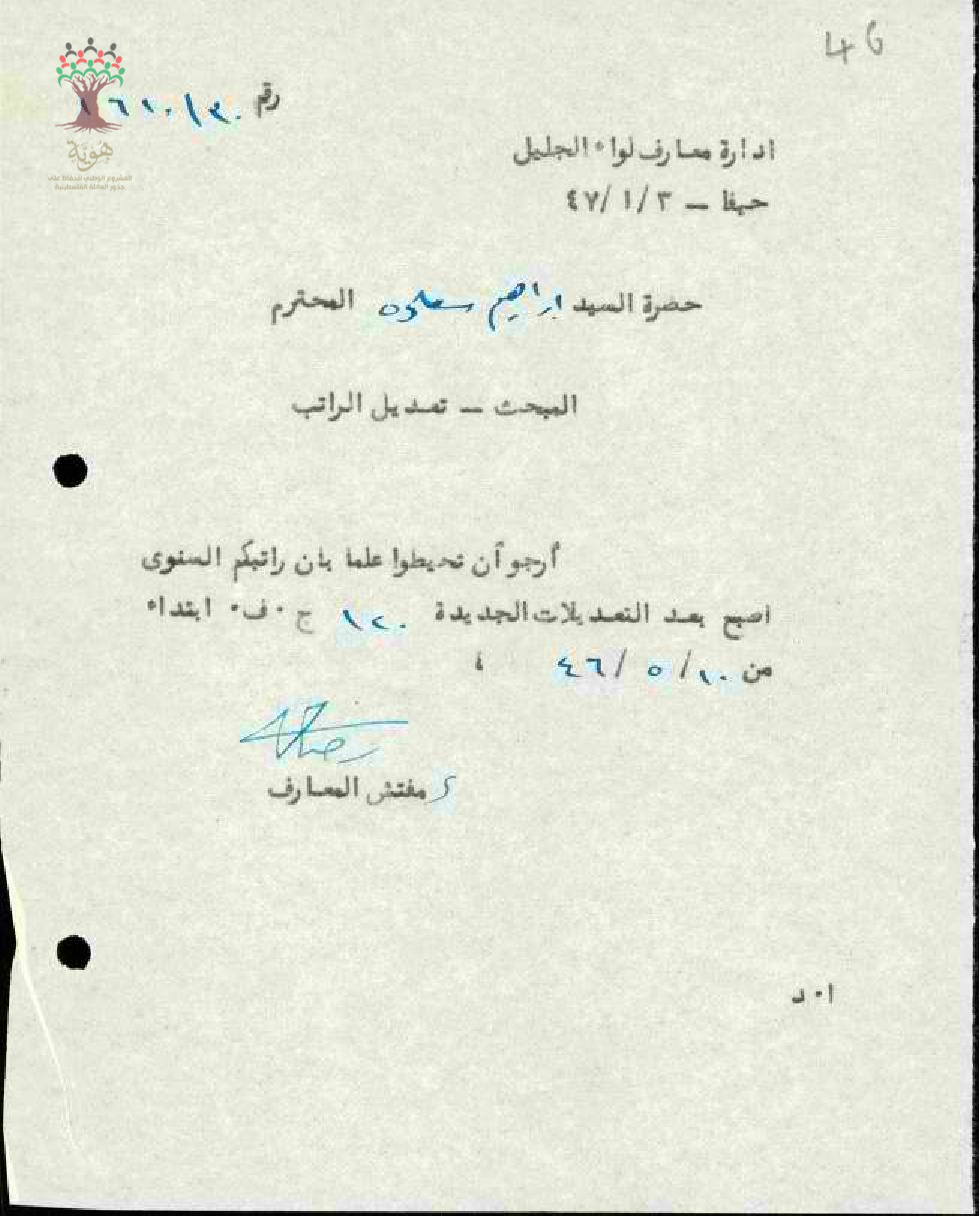 46
رقم
هوية
المشروع الوطني للحفاظ على
جذور العائلة الفلسطينية
ادارة معارف لواء الجليل
حيفا – ٤٧/١/٣
حضرة السيد ابراهيم المحترم
المبحث – تعديل الراتب
أرجو أن تحيطوا علما بان راتبكم السنوى
اصبح بعد التعديلات الجديدة ١٢٠ ج . ف . ابتداء
من ٤٦/٥/١٠ ،
مفتش المعارف
ا . د